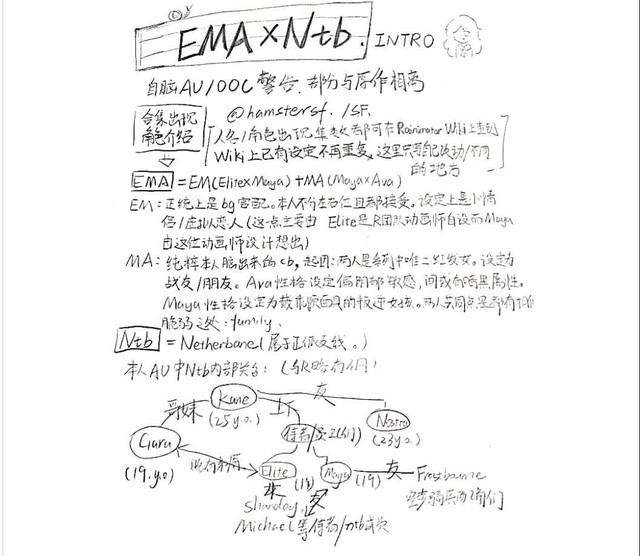 EMA×Ntb. INTRO
自脑AU/OOC警告.部分与原作相离
@hamstersf. /SF.
合集出现
角色介绍
人名/角色出现集数都可在Rainimator Wiki上查到
Wiki上已有设定不再重复,这里只写自己改动/不同
的地方
EMA =EM(Elite×Maya)+MA(Maya×Ava)
EM:正统上是bg官配。本人不分左右位且都接受。设定上是小情
侣/虚拟恋人(这一点主要由 Elite是R团队动画师自设而Maya
由这位动画师设计想出)
MA:纯粹本人脑出来的cb,起因:两人是系列中唯二红发女。设定为
战友/朋友。Ava性格设定偏阴郁敏感,间或有暗黑属性。
Maya性格设定为 的叛逆女孩。两人共同点是都有
脆弱之处:family.
Ntb =Netherbane(属于正派支线。)
本人AU中Ntb内部关系:(与R略有不同)
Kane
(25 y.o.)
友
哥妹
上下
侍者
(23 y.o.)
Ciara
(19.y.o)
Elite
(18)
Maya
(19)
友
Frostbourne
Michael等侍者/ntb成员